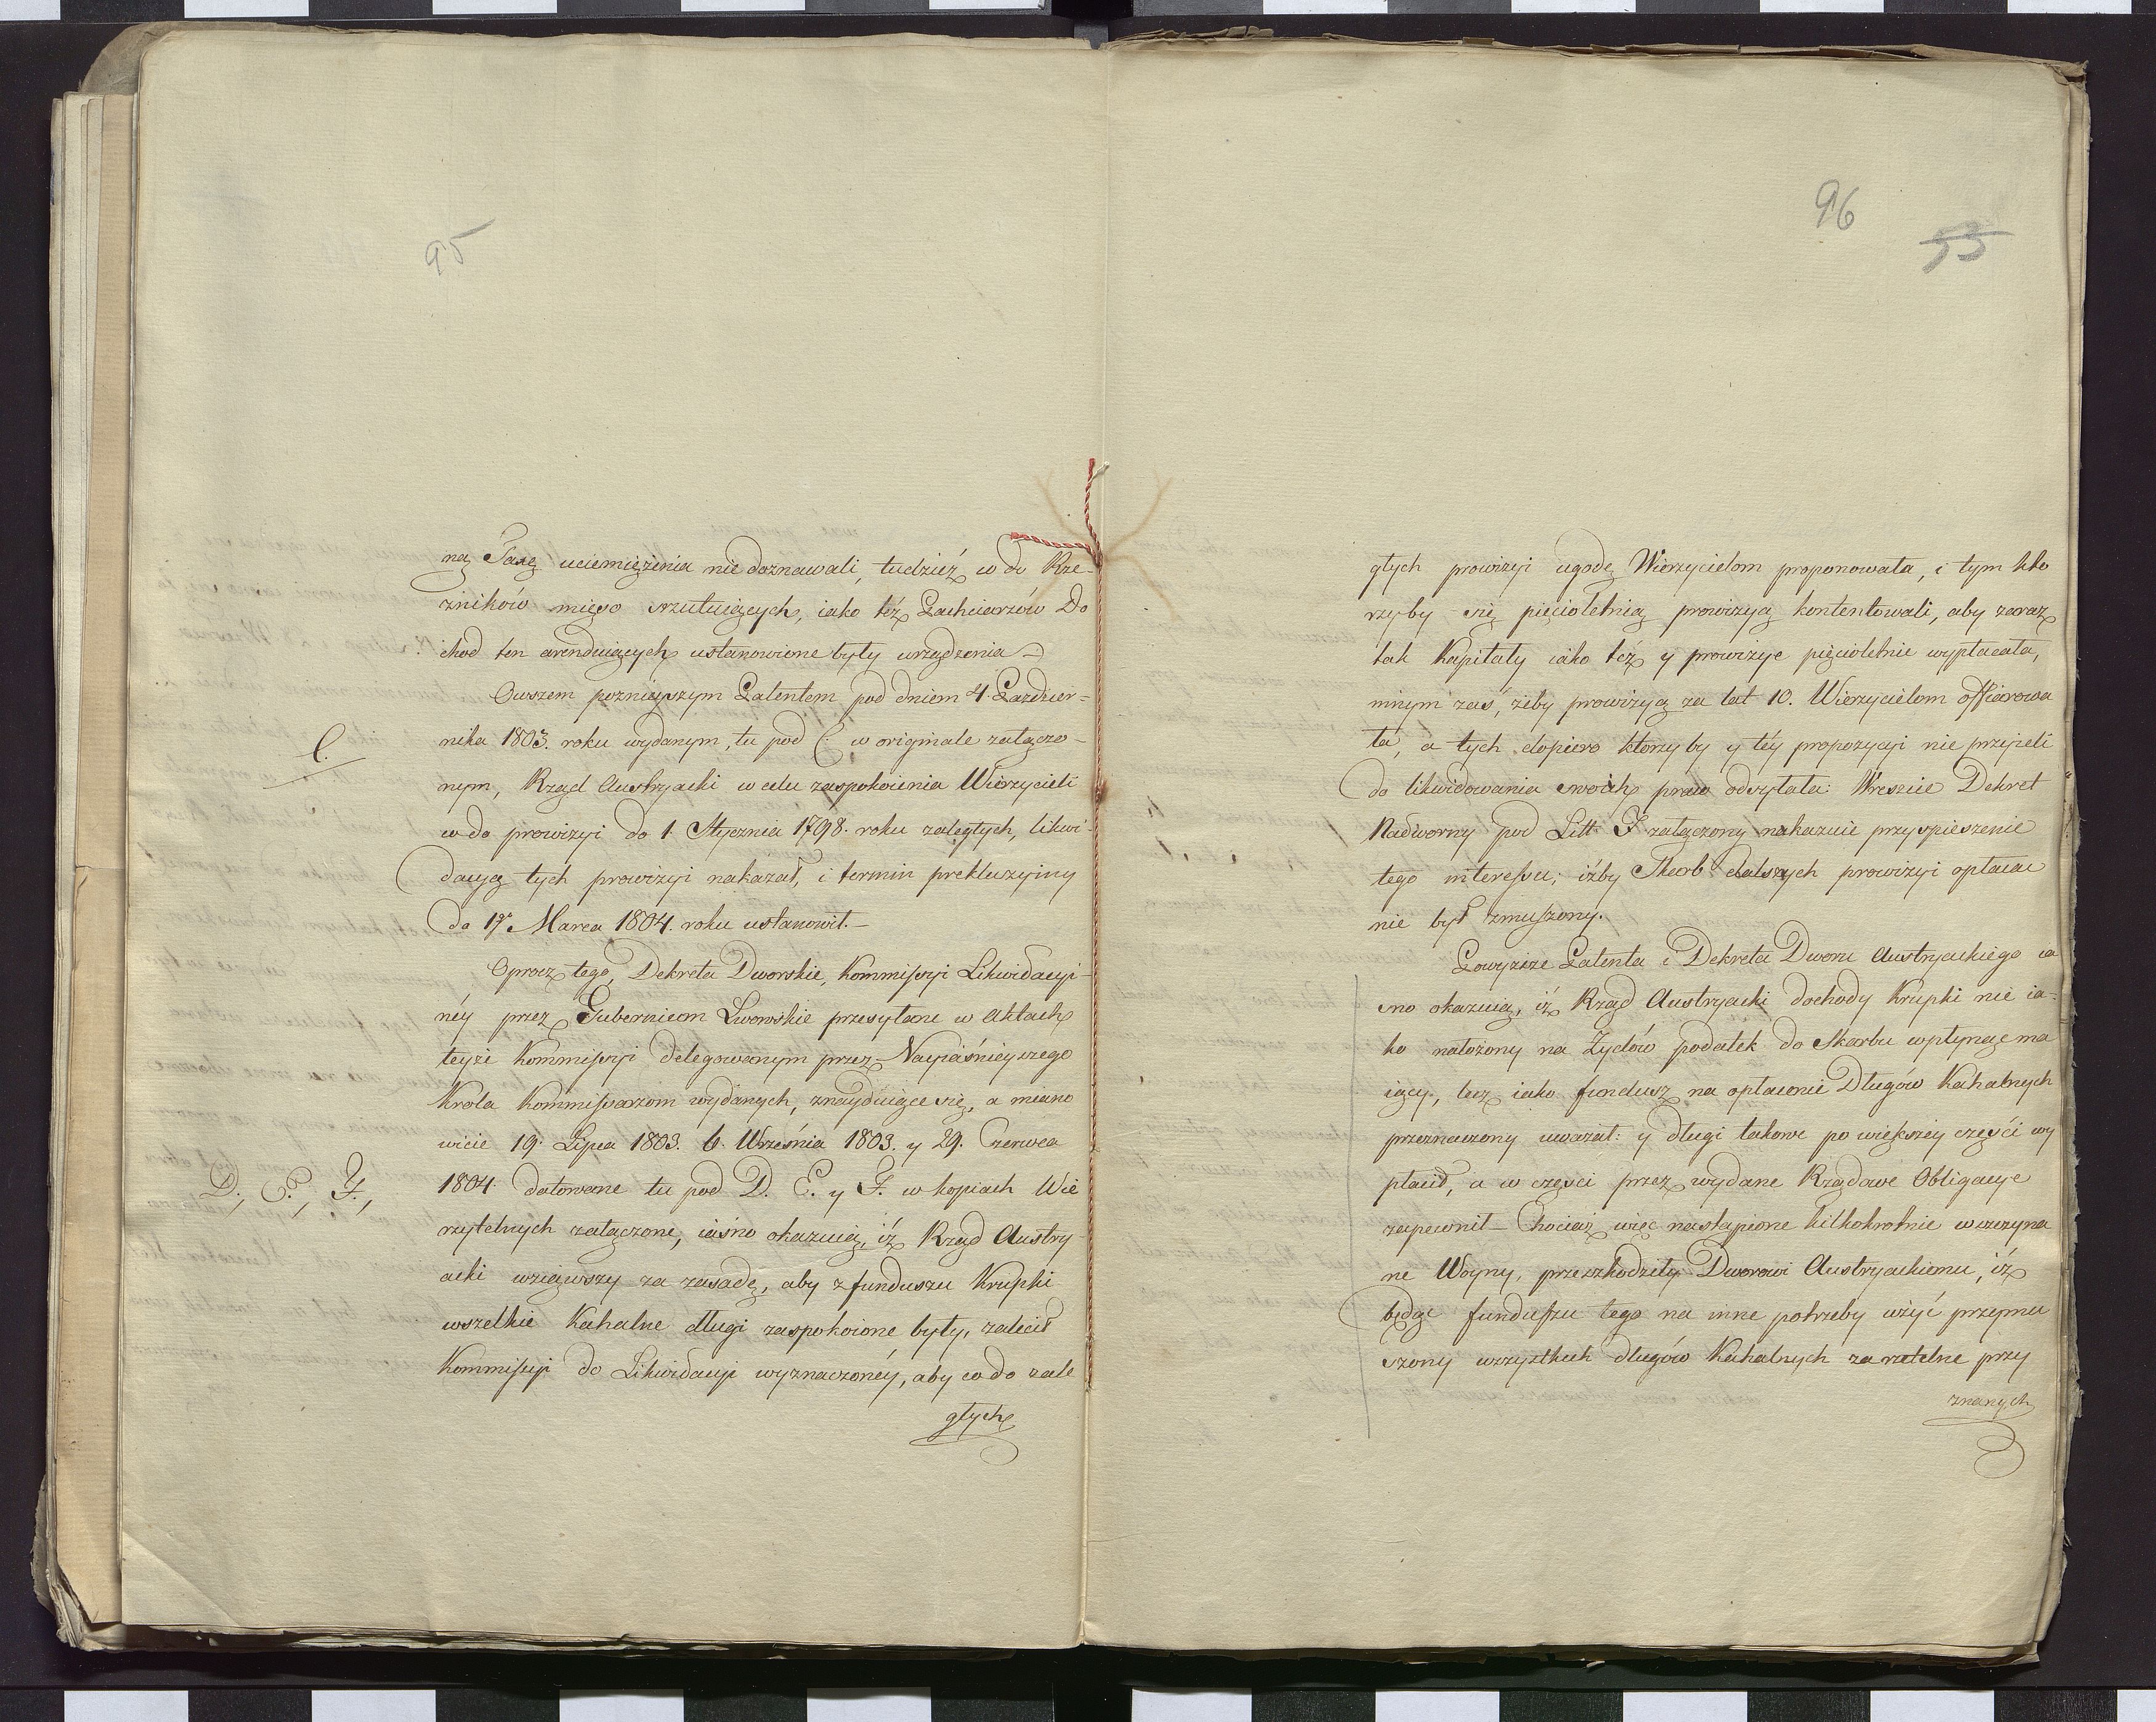 95
ną Taxę uciemiężenia nie doznawali, tudzież w do Rze-
zników mięso szutuiących, iako też Pachciarzów Do
chod ten arenduiących ustanowione były urządzenia
Owszem pozniejszym Patentem pod dniem 4. Paździer-
C.
nika 1803. roku wydanym, tu pod C. w originale załączo-
nym, Rząd Austryacki w celu zaspokoienia Wierzycieli
w do prowizyi do 1. Stycznia 1798. roku zaległych, likwi-
dacyą tych prowizyi nakazał, i termin prekluzyiny
do 1go Marca 1804. roku ustanowił.
Oprocz tego, Dekreta Dworskie, Kommissyi Likwidacyi-
néy przez Gubernium Lwowskie przesyłane w Aktach
teyże Kommissyi delegowanym przez Nayiaśnieyszego
Krola Kommissarzom wydanych, znayduiące się, a miano
wicie 19. Lipca 1803. 6. Września 1803. y 29. Czerwca
D., E., F.,
1804. datowane tu pod D. E. y F. w kopiach Wie
rzytelnych załączone, iasno okazuią, iż Rząd Austry
acki wziąwszy za zasadę, aby z funduszu Krupki
wszelkie Kahalne długi zaspokoione były, zalecił
Kommissyi do Likwidacyi wyznaczonéy, aby co do zale
głych
96
53
głych prowizyi ugodę Wierzycielom proponowała, i tym kto
rzyby się pięcioletnią prowizyą kontentowali, aby zaraz
tak Kapitały iako też y prowizye pięcioletnie wypłacała,
innym zaś, żeby prowizyą za lat 10. Wierzycielom offiarowa
ła, a tych dopiero którzyby y téy propozycyi nie przyjeli
do likwidowania swoich praw odsyłała: Wreszcie Dekret
Nadworny pod Litt: F. załączony nakazuie przyspieszenie
tego interessu; iżby Skarb dalszych prowizyi opłacac
nie był zmuszony.
Powyższe Patenta i Dekreta Dworu Austryackiego ia
sno okazuią, iż Rząd Austryacki dochody Krupki nie ia-
ko nałożony na Żydów podatek do Skarbu wpłynąć ma
iący, lecz iako fundusz na opłacenie Długów Kahalnych
przeznaczony uważał: y długi takowe po większéy części wy
płacił, a w części przez wydane Rządowe Obligacye
zapewnił – Chociaż więc nastąpione kilkokrotnie wszczyna
ne Woyny, przeszkodziły Dworowi Austryackiemu, iż
będąc funduszu tego na inne potrzeby użyć przymu
szony wszystkich długów Kahalnych za rzetelne przy
znanych